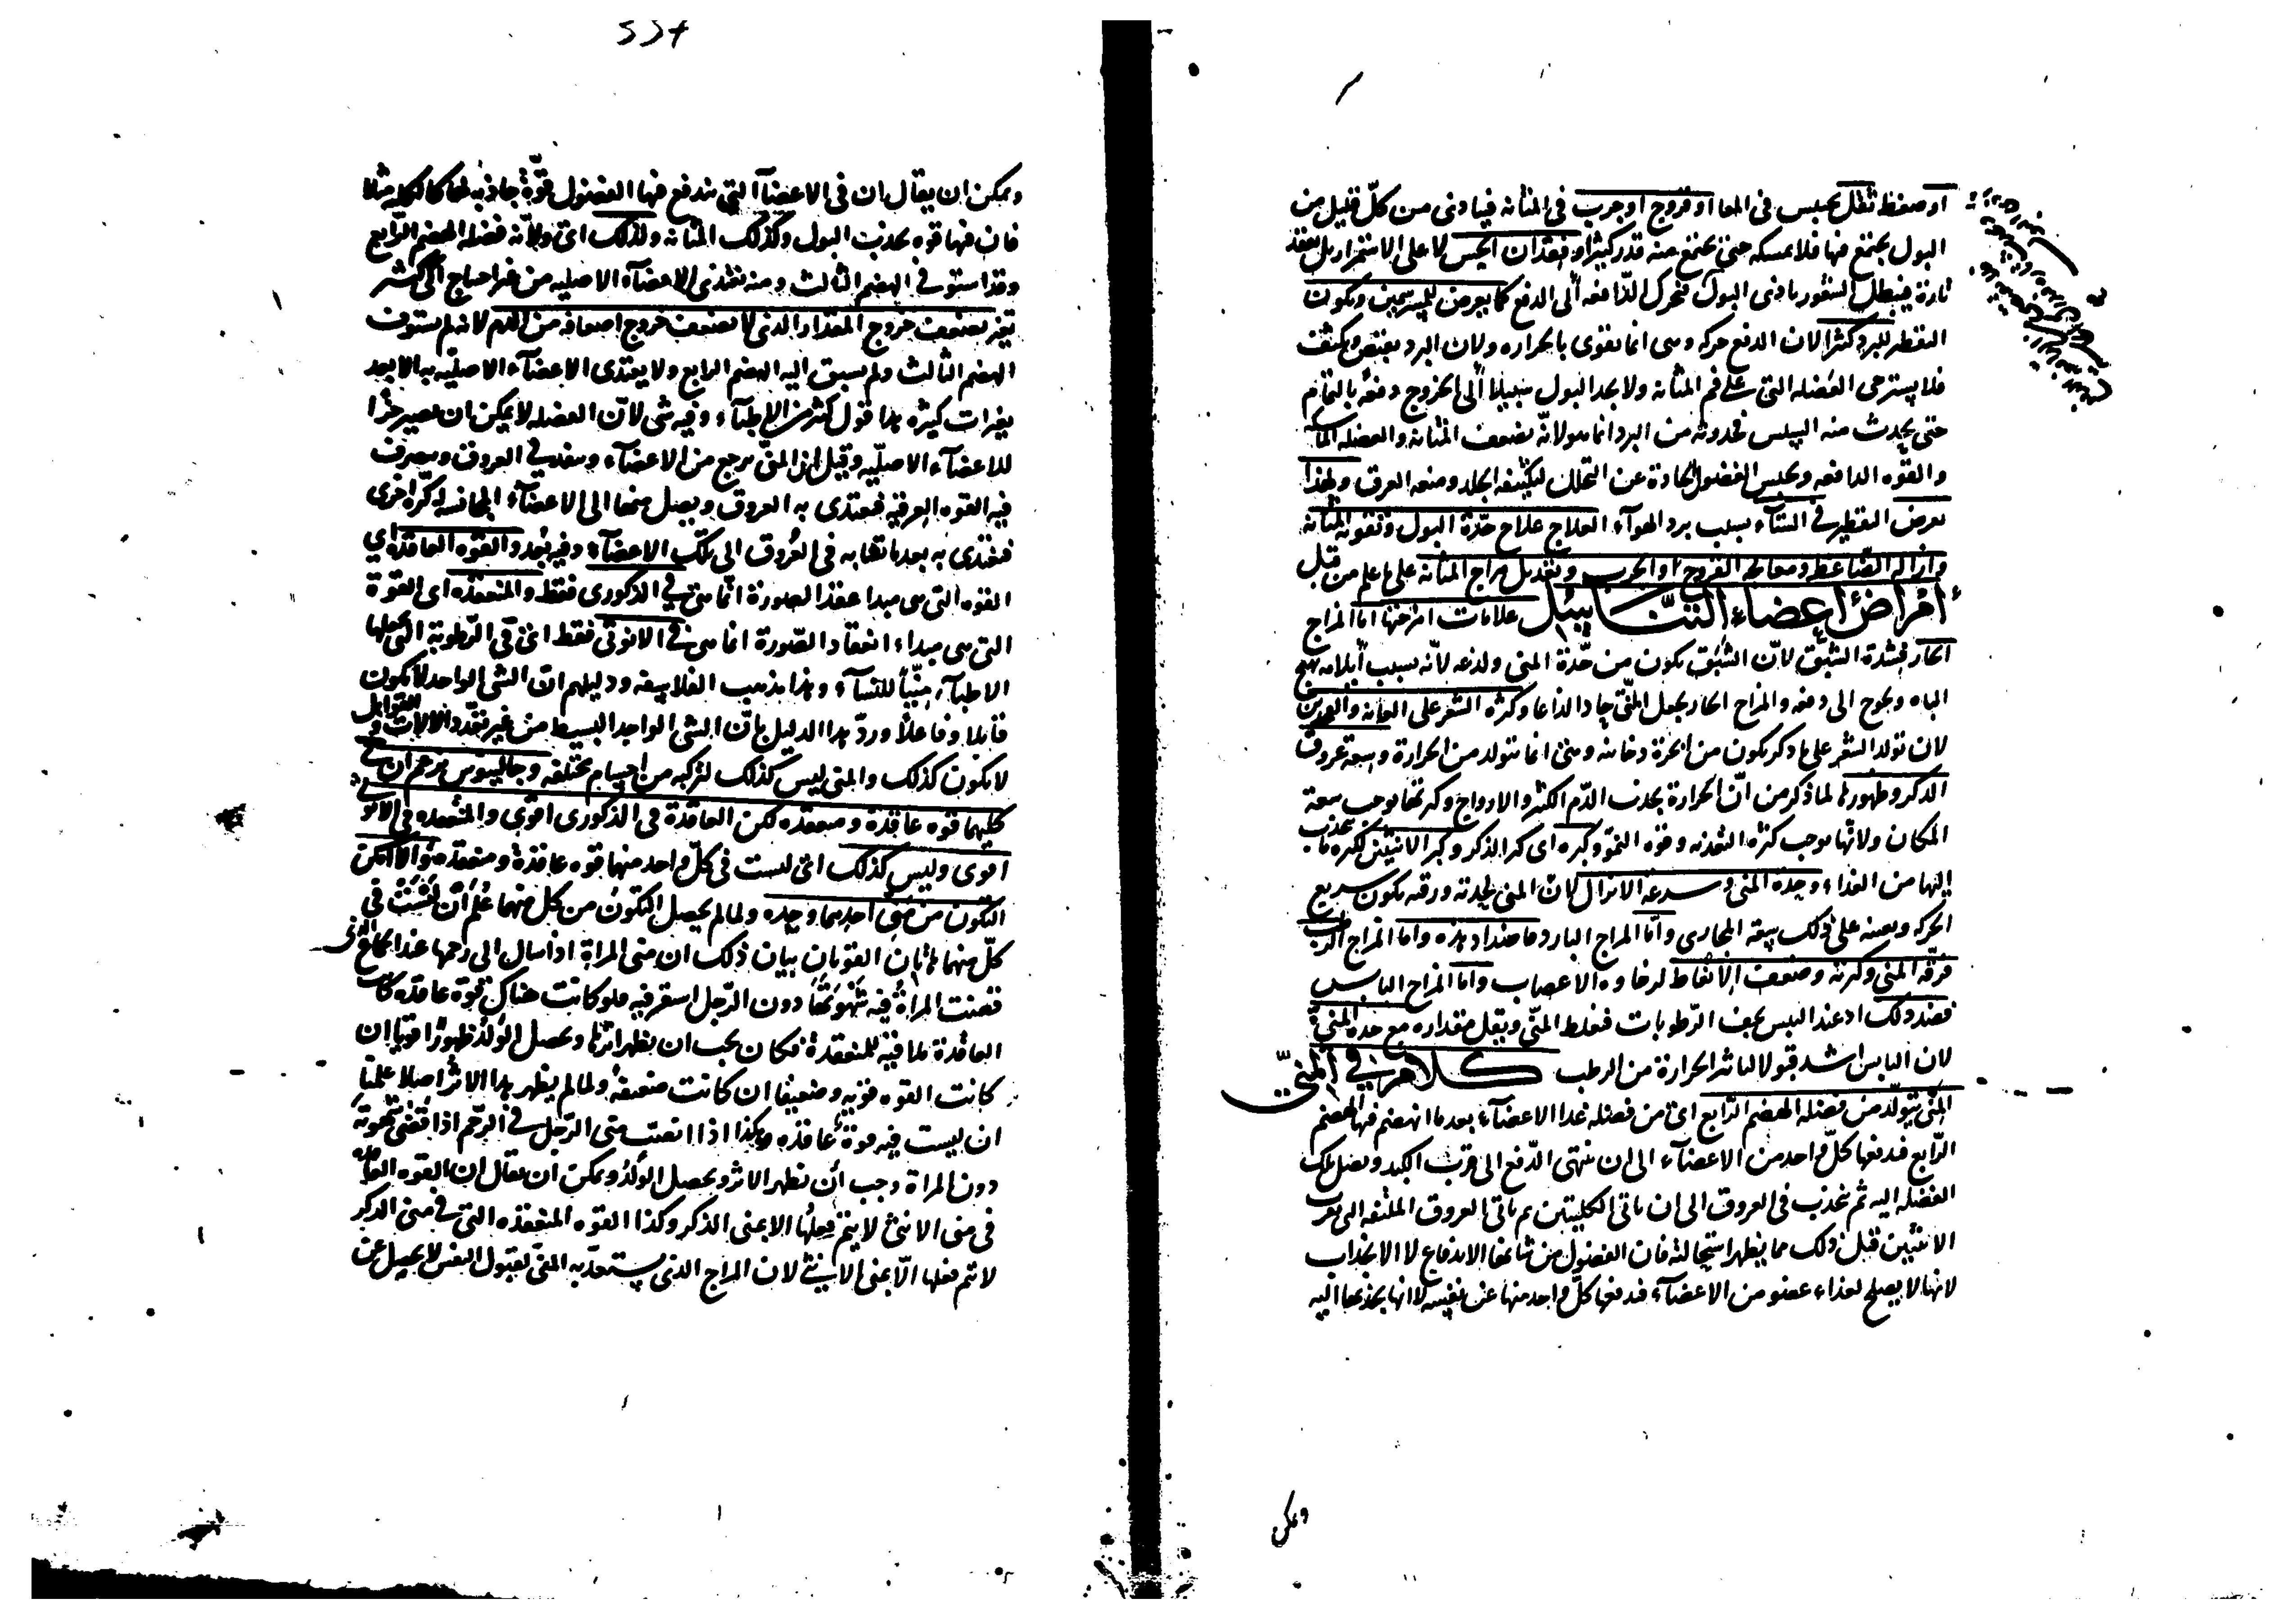 او ضغط ثقل يحبس فى المعا او قروح او جرب فى المثانة فيتأذى من كل قليل من
البول يجتمع فيها فلا يمسكه حتى يجتمع منه قدر كثير او فقدان الحس لا على الاستمرار بل يفقد
تارة فيبطل الشعور باذى البول فتحرك الدافعه الى الدفع كما يعرض للمبرسمين ويكون
التقطير للبرد كثيرا لان الدفع حركه وهى انما تقوى بالحراره ولان البرد يقبض ويكثف
فلا يسترخى العضله التى على فم المثانه ولا يجد البول سبيلا الى الخروج دفعة بالتمام
حتى يحدث منه السلس فحدوثه من البرد انما هو لانه يضعف المثانه والعضله
والقوه الدافعه ويحبس الفضول الحادة عن التحلل لتكثيفه الجلد ومنعه العرق ولهذا
يعرض التقطير فى الشتآء بسبب برد الهوآء العلاج علاج حدّة البول وتقوية المثانه
وازاله الضاغط ومعالجه القروح او الجرب وتعديل مزاج المثانه على ما علم من قبل
امراض اعضاء التناسل علامات امزجتها اما المزاج
الحار فشدة الشبق لانّ الشبق يكون من حدّة المنى ولذعه لانه بسبب ايلامه يهيج
الباه ويحوج الى دفعه والمزاج الحار يجعل المنى حادا لذاعا وكثره الشعر على العانه والفخذين
لان تولد الشعر على ما ذكر يكون من ابخرة دخانيه وهى انما تتولد من الحرارة وسعة عروق
الذكر وظهورها لما ذكر من انّ الحرارة يجذب الدّم الكثير والارواح وكثرتها يوجب سعة
المكان ولانها يوجب كثره التغذيه وقوة النموّ وكبره اى كبر الذكر وكبر الانثيين لكثره ما يجذب
اليها من الغذاء وحدة المنى وسرعة الانزال لانّ المنى لحدته ورقته يكون سريع
الحركه ويعينه على ذلك سعة المجارى وامّا المزاج البارد فاضداد هذه واما المزاج الرطب
فرقّه المنى وكثرته وضعف الانعاظ لرخاوه الاعصاب واما المزاج اليابس
فضد ذلك اذ عند اليبس يجف الرّطوبات فيغلظ المنى ويقل مقداره مع حدة المنى
لان اليابس اشد قبولا لتاثير الحرارة من الرطب كلام فى المنىّ
المنى يتولّد من فضله الهضم الرّابع اى من فضله غذا الاعضآء بعد ما انهضم فيها الهضم
الرّابع فدفعها كلّ واحد من الاعضآء الى ان ينتهى الدّفع الى قرب الكبد ويصل تلك
الفضله اليه ثم يجذب فى العروق الى ان ياتى الكليتين ثم ياتى العروق الملتفه التى بقرب
الانثيين قبل ذلك مما يظهر استحالته فان الفضول من شانها الاندفاع لا الانجذاب
لانها لا يصلح لغذاء عضو من الاعضآء فدفعها كلّ واحد منها عن نفسه لا انها يجذبها اليه
ويمكن
ويمكن ان يقال ان فى الاعضآ التى يندفع فيها الفضول قوّة جاذبه لها كالكليه مثلا
فان فيها قوه يجذب البول وكذلك المثانه ولذلك اى ولانّه فضله الهضم الرّابع
وقد استوفى الهضم الثالث ومنه تغتذى الاعضآء الاصليه من غير احتياج الى كثير
تغير يضعف خروج المقدار الذى لا يضعف خروج اضعافه من الدم لانه لم يستوف
الهضم الثالث ولم يسبق اليه الهضم الرابع ولا يغتذى الاعضآء الاصليه به الا بعد
تغيرات كثيره هذا قول اكثر الاطبآء وفيه شى لانّ الفضله لا يمكن ان تصير جزأ
للاعضآء الاصليه وقيل ان المنى يرجع من الاعضآء وينفذ فى العروق ويتصرف
فيه القوه العرقيه فيغتذى به العروق ويصل منها الى الاعضآء المجانسه له كرّة اخرى
فيغتذى به بعد تشابهه فى العُروق الى تلك الاعضآء وفيه بُعد والقوه العاقدة اى
القوه التى هى مبدا عقد الصورة انما هى فى الذكورى فقط والمنعقده اى القوة
التى هى مبداء انعقاد الصّورة انما هى فى الانوثى فقط اى فى الرّطوبة التى يجعلها
الاطبآء منيّا للنسآء وهذا مذهب الفلاسفه ودليلهم انّ الشى الواحد لا يكون
قابلا وفاعلا وردّ هذا الدليل بانّ الشى الواحد البسيط من غير تعدّد الآلات و القوابل
لا يكون كذلك والمنى ليس كذلك لتركبه من اجسام مختلفه وجالينوس يزعم ان فى
كليهما قوه عاقدة ومنعقده لكن العاقدة فى الذكورى اقوى والمنعقده فى الانوثى
اقوى وليس كذلك اى ليست فى كلّ واحد منهما قوه عاقدة ومنعقده والا امكن
التكون من منى احدهما وحده ولما لم يحصل التكون من كل منهما عُلم ان ليست فى
كلّ منهما هاتان القوتان بيان ذلك ان منى المراة اذا سال الى رحمها عند الجماع الذى
قضت المراةُ فيه شهوتها دون الرّجل استقر فيه فلو كانت هناك قوة عاقده كانت
العاقدة ملاقية للمنعقدة فكان يجب ان يظهر اثرها ويحصل الولدُ ظهورًا قويا ان
كانت القوه قويه وضعيفا ان كانت ضعيفه ولما لم يظهر هذا الاثر اصلا علمنا
ان ليست فيه قوة عاقده وهكذا اذا انصبّ منى الرّجل فى الرّحم اذا قضى شهوته
دون المراة وجب ان يظهر الاثر ويحصل الولدُ ويمكن ان يقال ان القوه العاقده
فى منى الانثى لا يتم فعلها الا بمنى الذكر وكذا القوه المنعقده التى فى منى الذكر
لا يتم فعلها الّا بمنى الانثى لان المزاج الذى يستعدّ به المنى لقبول النفس لا يحصل عن